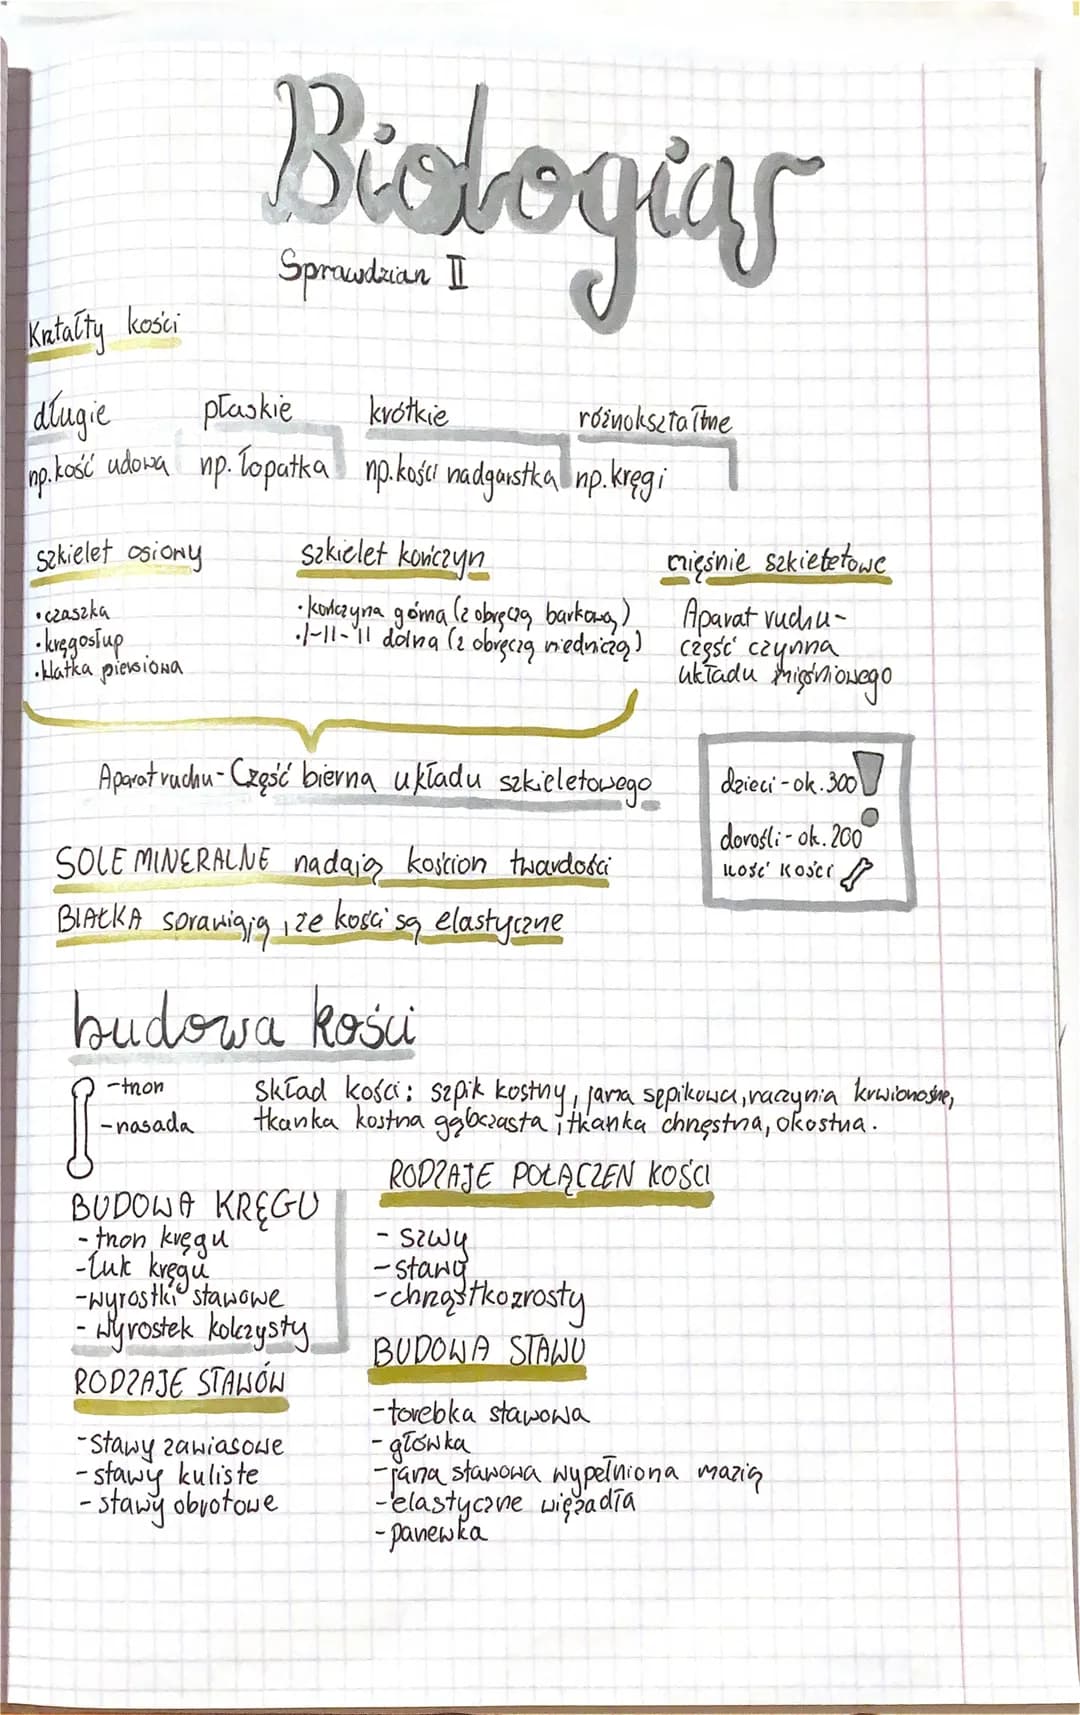 Biologia
Sprawdzian II
Kształty kości
długie płaskie krótkie różnokształtne
np. kość udowa np. łopatka np. kości nadgarstka np. kręgi
szkielet osiowy szkielet kończyn mięśnie szkieletowe
• czaszka
• kręgosłup
• klatka piersiowa
• kończyna górna (z obręczą barkową)
• -/-||-'|| dolna (z obręczą miedniczą)
Aparat ruchu-
część czynna
układu mięśniowego
Aparat ruchu - Część bierna układu szkieletowego
dzieci - ok. 300
dorośli - ok. 200
ilość kości
SOLE MINERALNE nadają kościon twardości
BIAŁKA sprawiają, że kości są elastyczne
budowa kości
- trzon
- nasada
Skład kości: szpik kostny, jama szpikowa, naczynia krwionośne,
tkanka kostna gąbczasta, tkanka chrzęstna, okostna.
BUDOWA KRĘGU
- trzon kręgu
- łuk kręgu
- wyrostki stawowe
- wyrostek kolczysty
RODZAJE STAWÓW
- stawy zawiasowe
- stawy kuliste
- stawy obrotowe
RODZAJE POŁĄCZEŃ KOŚCI
- szwy
- stawy
- chrząstkozrosty
BUDOWA STAWU
- torebka stawowa
- główka
- jama stawowa wypełniona mazią
- elastyczne więzadła
- panewka